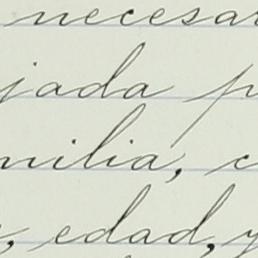 necesar
jada p
milia, c
, edad, y